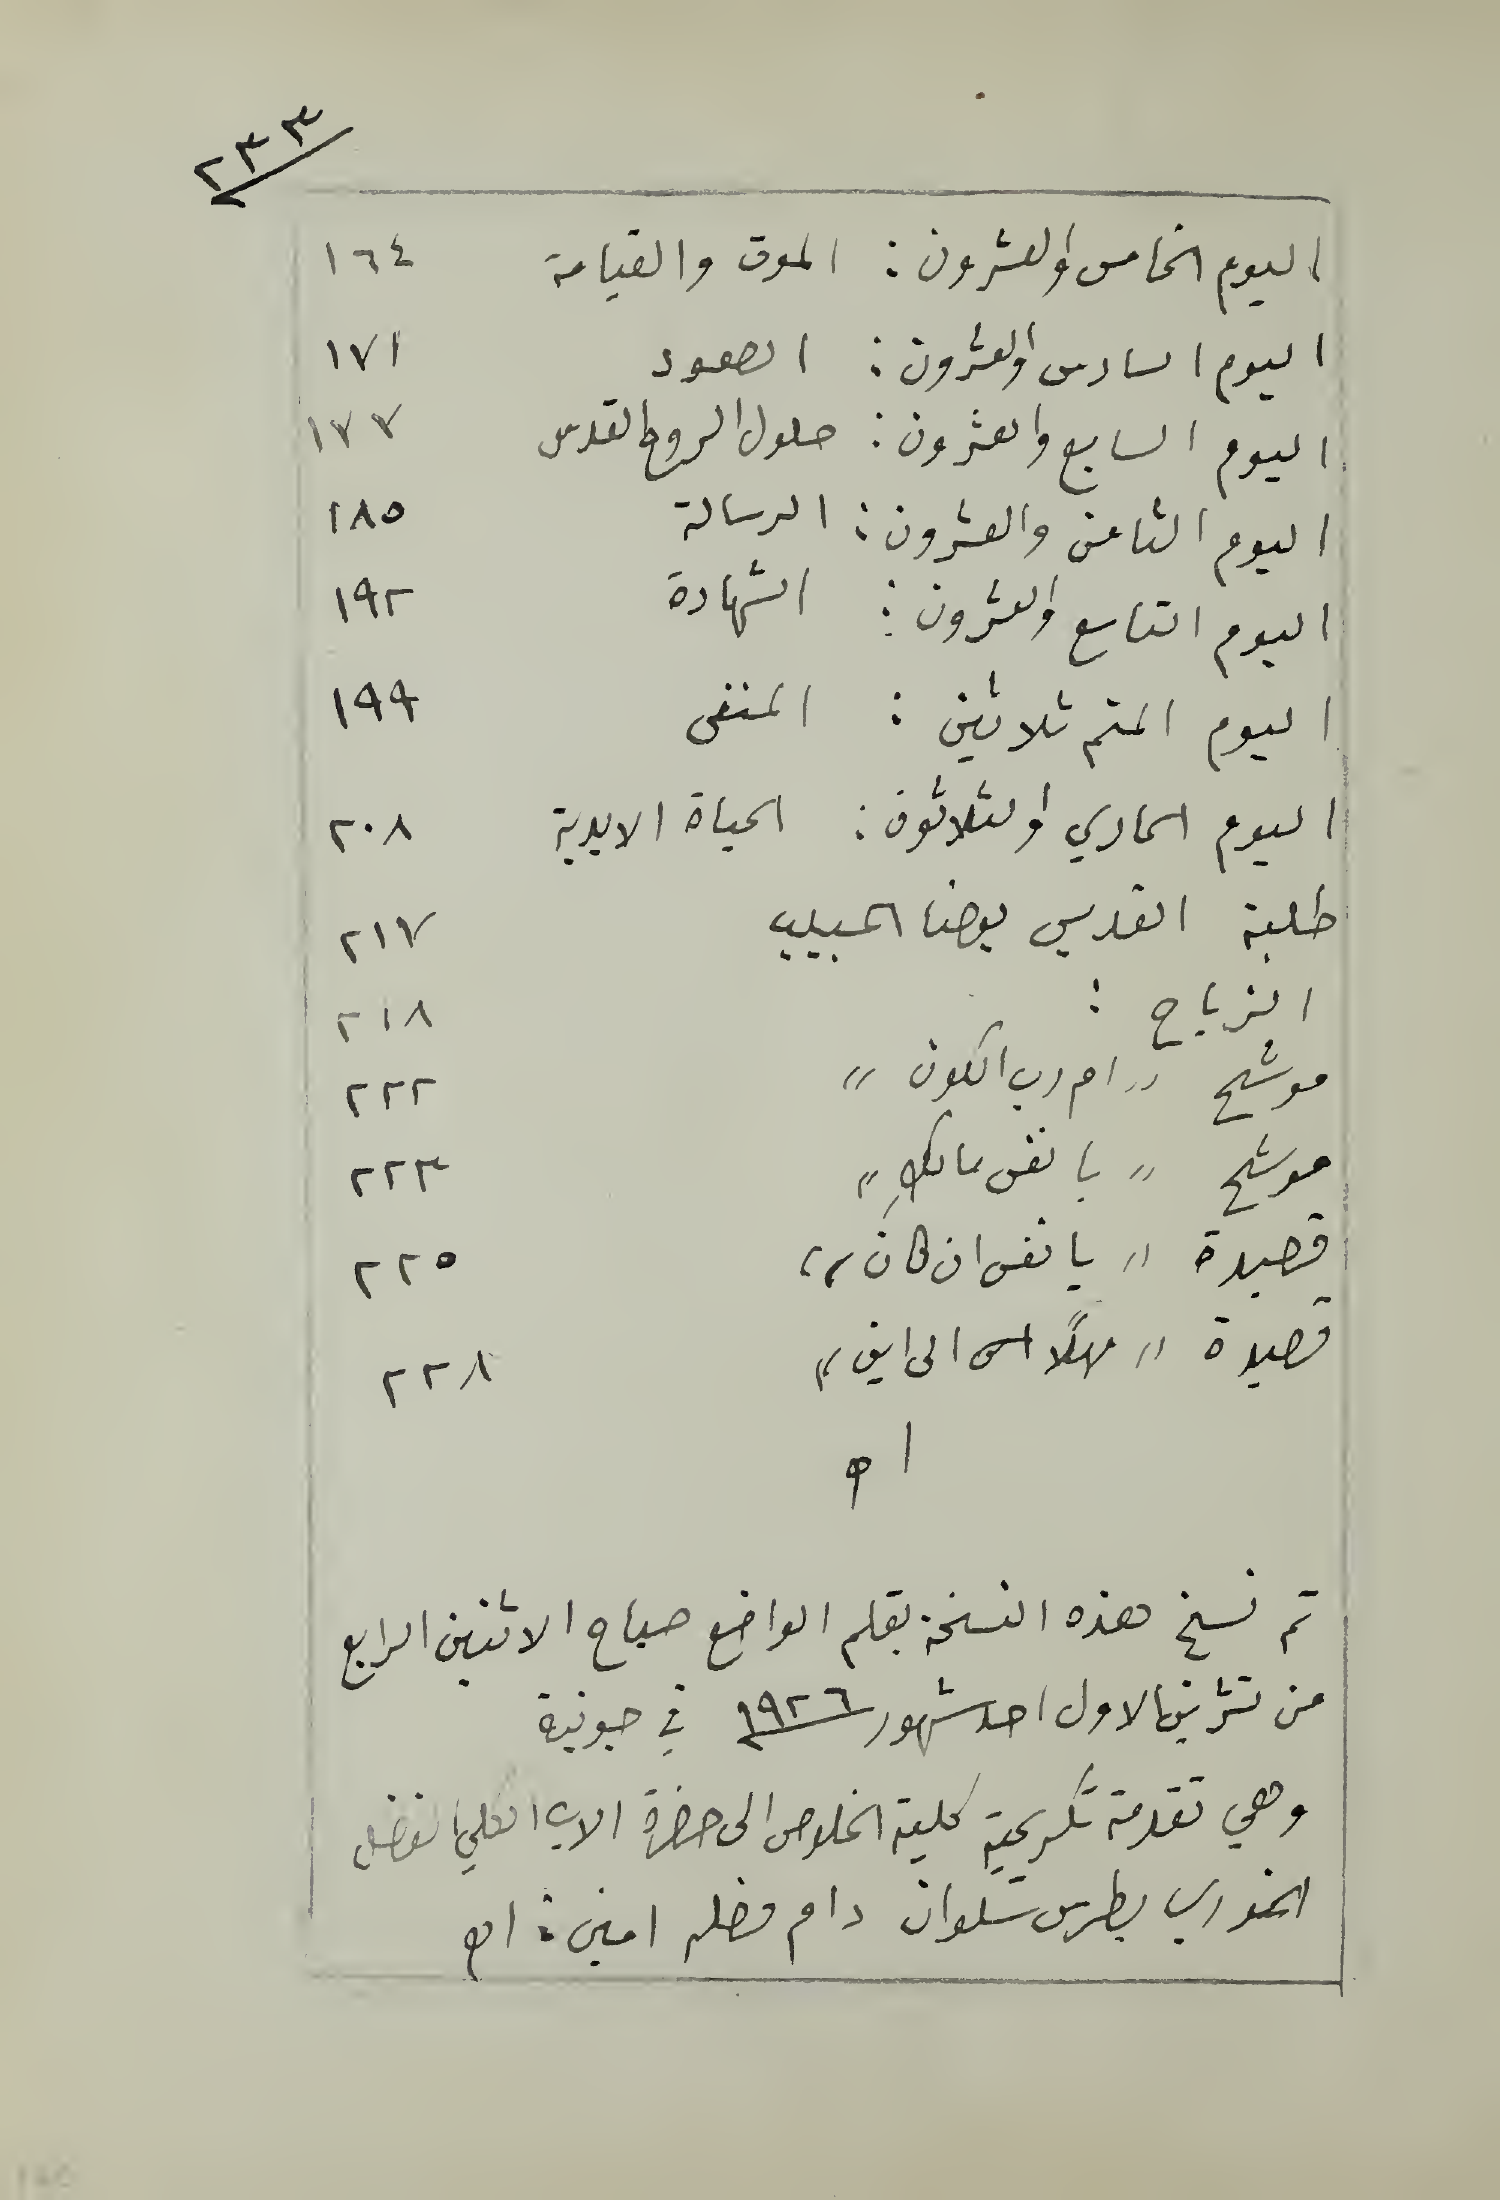 ٢٣٣
اليوم الخامس والعشرون : الموت والقيامة ١٦٤
اليوم السادس والعشرون : الصعود ١٧١
اليوم السابع والعشرون : حلول الروح القدس ١٧٧
اليوم الثامن والعشرون : الرسالة ١٨٥
اليوم التاسع والعشرون : الشهادة ١٩٢
اليوم المتم ثلاثين : المنفى ١٩٩
اليوم الحادي والثلاثون : الحياة الابدية ٢٠٨
طلبة القديس يوحنا الحبيب ٢١٧
الزياح : ٢١٨
موشح " ام رب الكون " ٢٢٢
موشح " يا نفس مالكِ " ٢٢٣
قصيدة " يا نفس ان كان " ٢٢٥
قصيدة " مهلًا الى اين " ٢٢٨
اه
تم نسخ هذه النسخة بقلم الواضع صباح الاثنين الرابع
من تشرين الاول احد شهور ١٩٢٦ في جونية
وهي تقدمة تكريمية كلية الخلوص الى حضرة الاب الكلي الفضل
الخوري بطرس شلوان دام فضله امين : اه